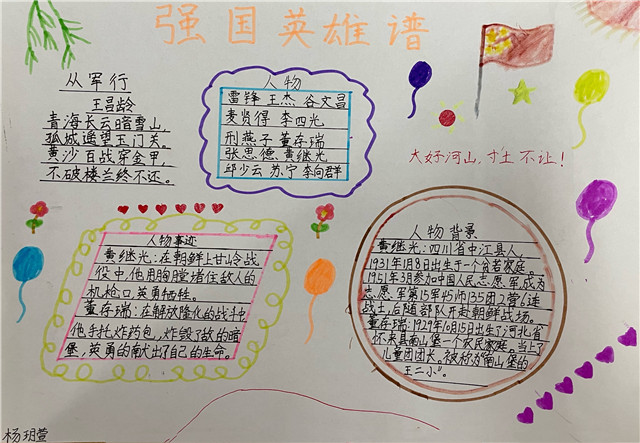 强国英雄谱
从军行
王昌龄
青海长云暗雪山,
孤城遥望玉门关。
黄沙百战穿金甲,
不破楼兰终不还。
人物
雷锋 王杰 谷文昌
麦贤得 李四光
邢燕子 董存瑞
张思德 黄继光
邱少云 苏宁 李向群
大好河山,寸土不让!
人物事迹
黄继光:在朝鲜上甘岭战
役中他用胸膛堵住敌人的
机枪口,英勇牺牲。
董存瑞:在解放隆化的战斗中
他手托炸药包,炸毁了敌的暗
堡,英勇的献出了自己的生命。
人物背景
黄继光:四川省中江县人,
1931年1月8日出生于一个贫若家庭。
1951年3月参加中国人民志愿军,成为
志愿军第15军45师135团2营6连
战士,后随部队开赴朝鲜战场。
董存瑞:1929年10月15日出生了河北省
怀来县南山堡一个农民家庭。当上了
儿童团团长,被称为“南山堡的
王二小”。
杨玥萱